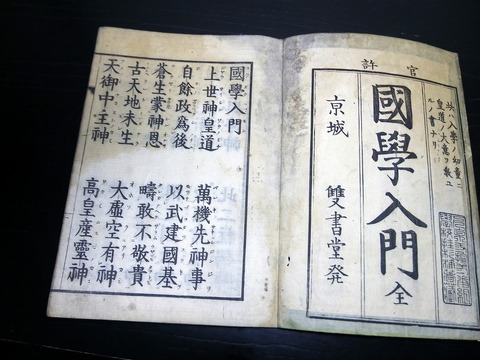 官許
此ハ入學ノ幼童ニ
皇道ノ大意ヲ教ユ
ルノ書ナリ
國學入門 全
京城 雙書堂発
國學入門
上世神皇道 萬機先神事
自餘政為後 以武建國基
蒼生蒙神恩 疇敢不敬貴
古天地未生 大虚空有神
天御中主神 高皇産靈神